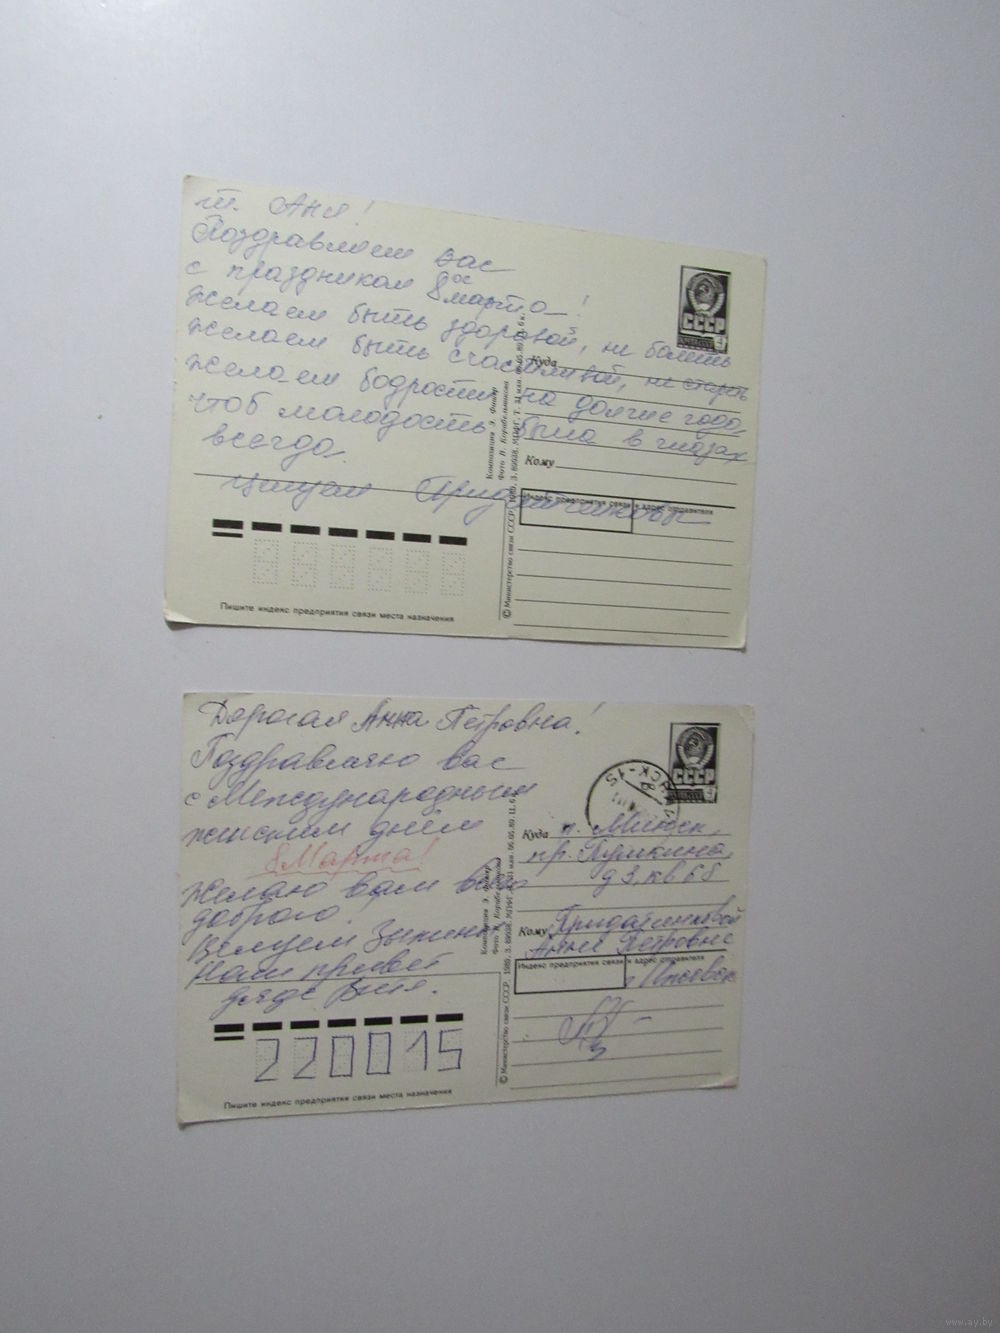 т. Аня!
Поздравляем вас
с праздником 8ое марта!
желаем быть здоровой, не болеть
желаем быть счастливой, не стареть
желаем бодрости на долгие года,
чтоб молодость была в глазах
всегда.
Целуем
СССР
4
Куда
Кому
Индекс предприятия связи и адрес отправителя
Композиция Э. Фишер
Фото Н. Корабельникова
© Министерство связи СССР, 1989.
Пишите индекс предприятия связи места назначения
Дорогая Анна Петровна!
Поздравляю вас
с Международным
женским днём
8 Марта!
Желаю вам всего
доброго!
Наш привет
дяде
СССР
4
Куда г. Минск,
пр. Пушкина,
д 3, кв 68
Кому
Анне Петровне
Индекс предприятия связи и адрес отправителя
Композиция Э. Фишер
Фото Н. Корабельникова
© Министерство связи СССР, 1989.
220015
Пишите индекс предприятия связи места назначения
www.ay.by